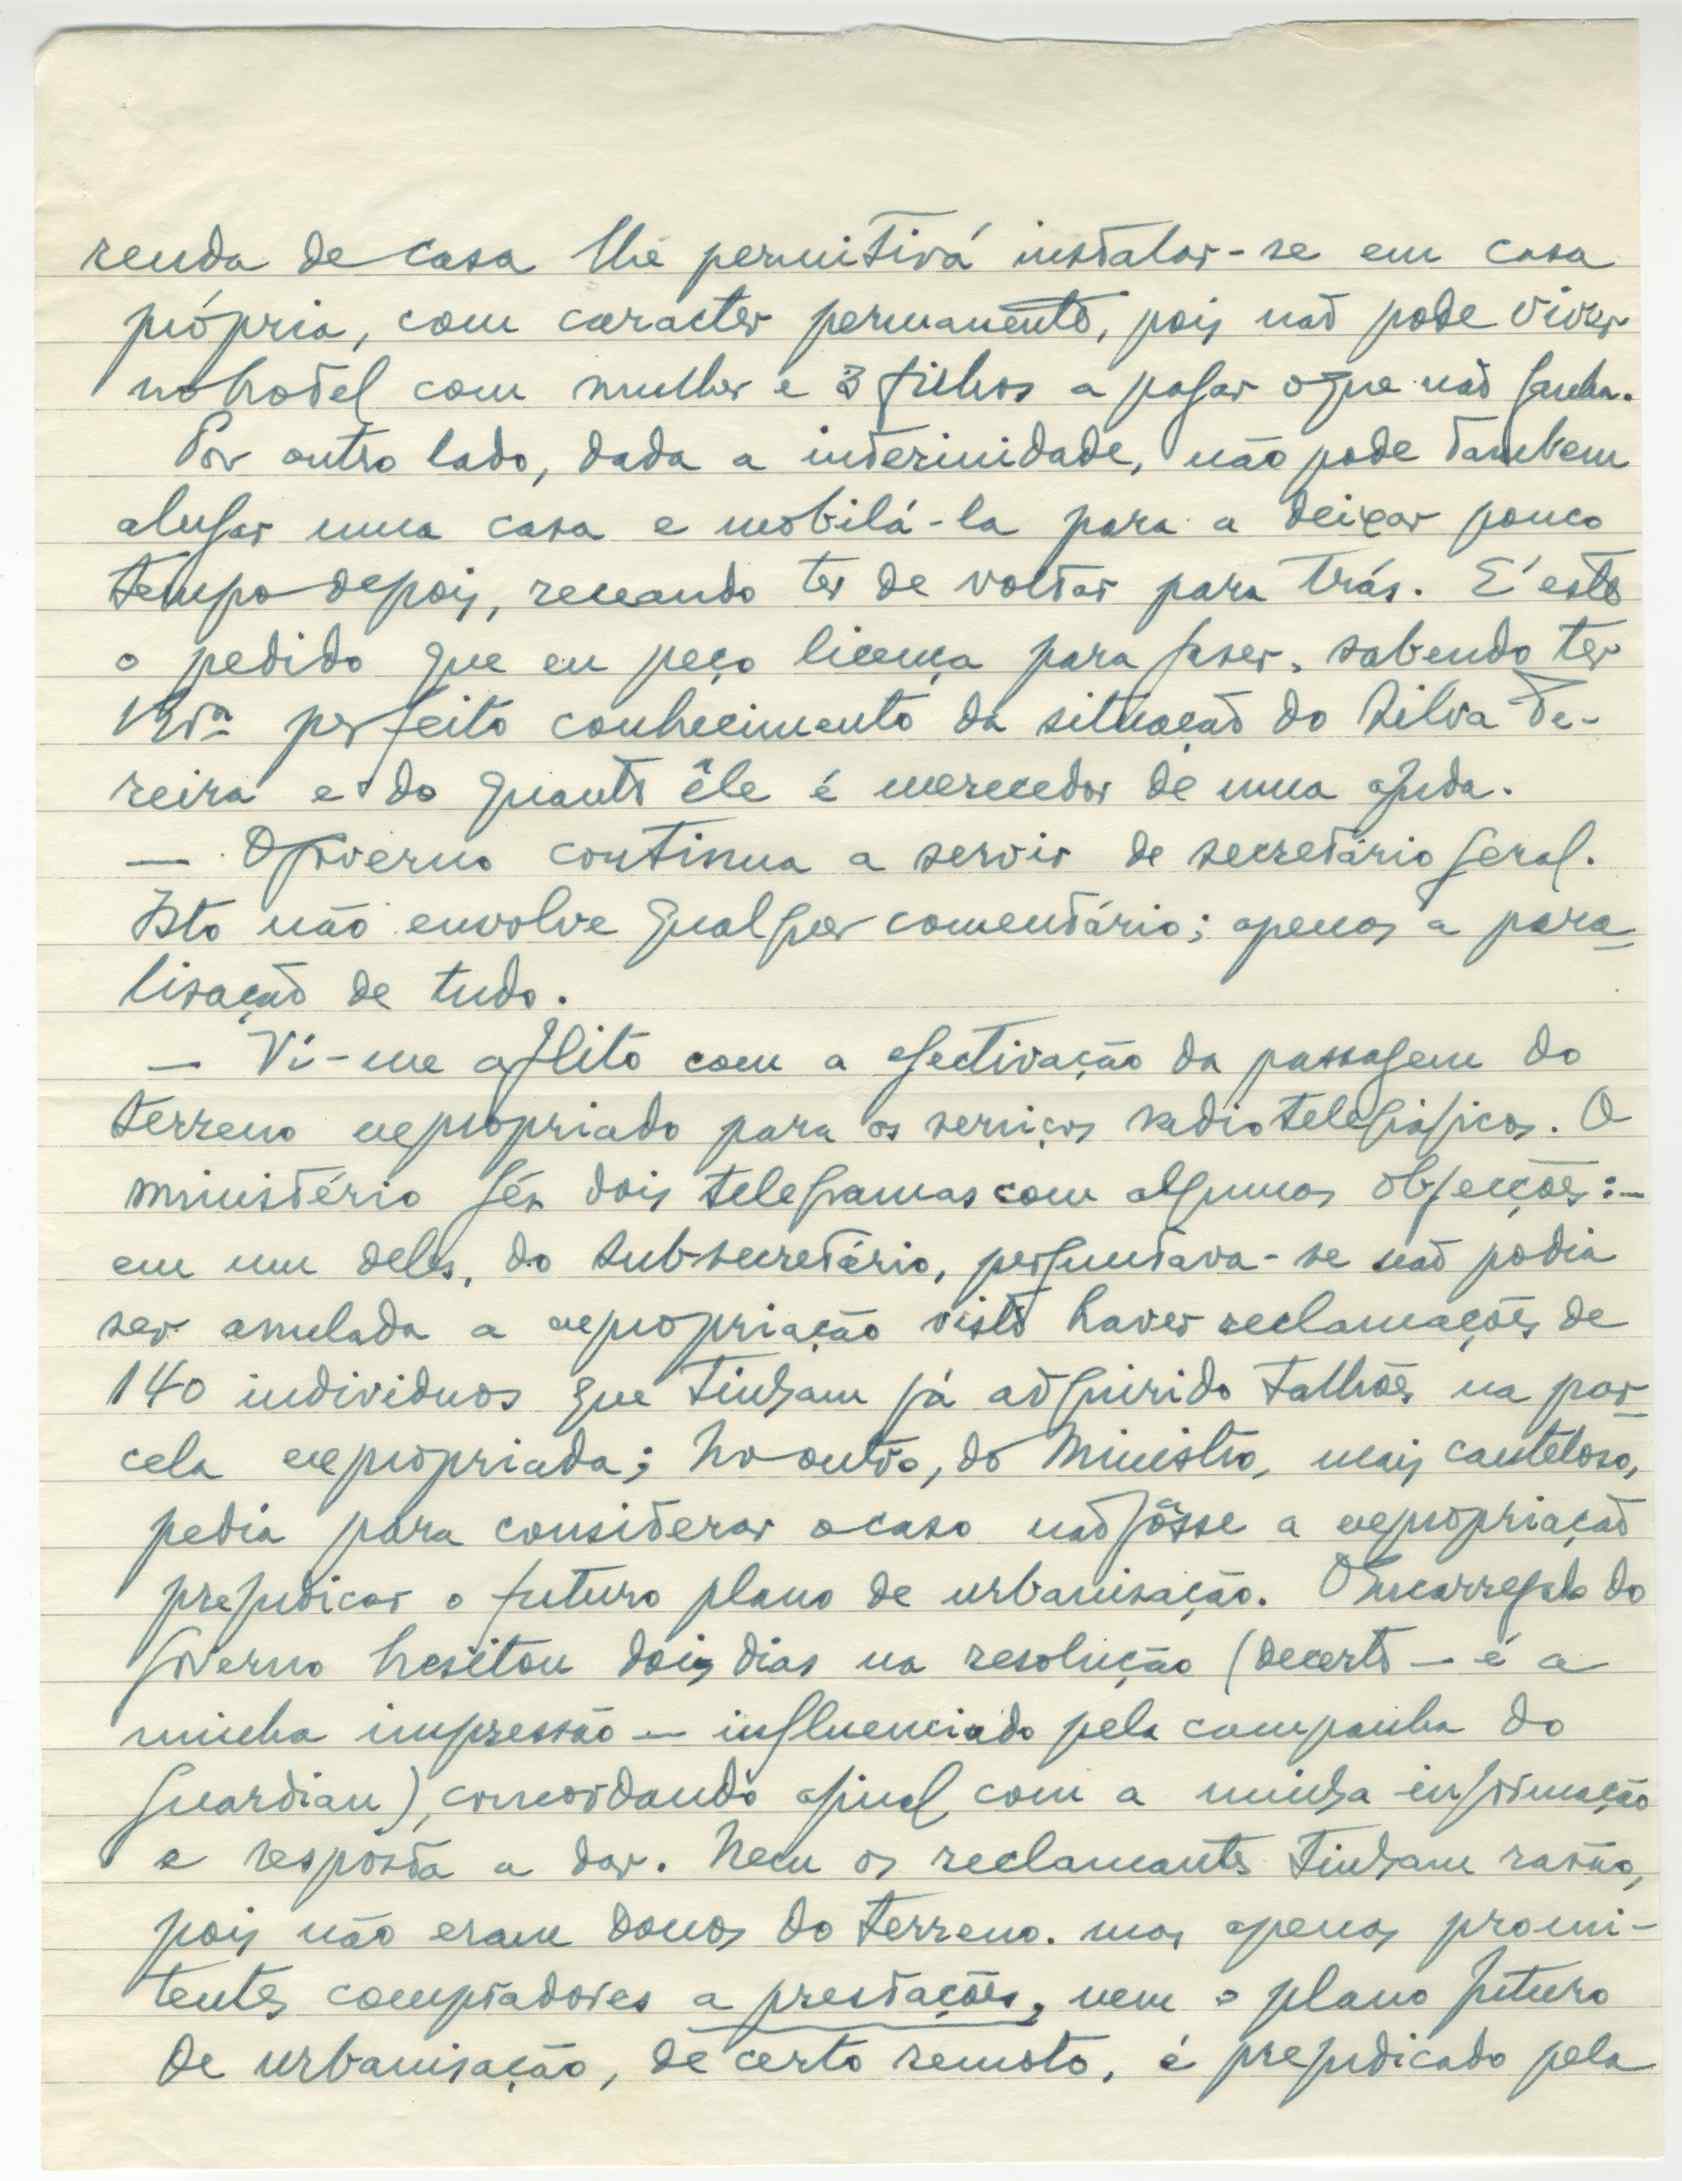 renda de casa lhe permitirá instalar-se em casa
própria, com caracter permanente, pois não pode viver
no hotel com mulher e 3 filhos a pagar o que não ganha.
Por outro lado, dada a interinidade, não pode tambem
alugar uma casa e mobilá-la para a deixar pouco
tempo depois, receando ter de voltar para trás. E' este
o pedido que eu peço licença para faser, sabendo ter
perfeito conhecimento da situação do Silva Te-
reira e do quanto êle é merecedor de uma ajuda.
— O Govêrno continua a servir de secretário geral.
Isto não envolve qualquer comentário; apenas a para-
lisação de tudo.
— Vi-me aflito com a efectivação da passagem do
terreno expropriado para os serviços radiotelegráficos. O
ministério fês dois telegramas com algumas objecções:—
em um deles, do Subsecretário, perguntava-se não podia
ser anulada a expropriação visto haver reclamações de
140 individuos que tinham já adquirido talhões na par-
cela expropriada; no outro, do Ministro, mais cauteloso,
pedia para considerar o caso não fôsse a expropriação
prejudicar o futuro plano de urbanisação. O Encarregado do
Governo hesitou dois dias na resolução (decerto — é a
minha impressão — influenciado pela campanha do
Guardian), concordando afinal com a minha informação
e resposta a dar. Nem os reclamantes tinham rasão,
pois não eram donos do terreno, mas apenas promi-
tentes compradores a prestações, nem o plano futuro
de urbanisação, de certo remoto, é prejudicado pela